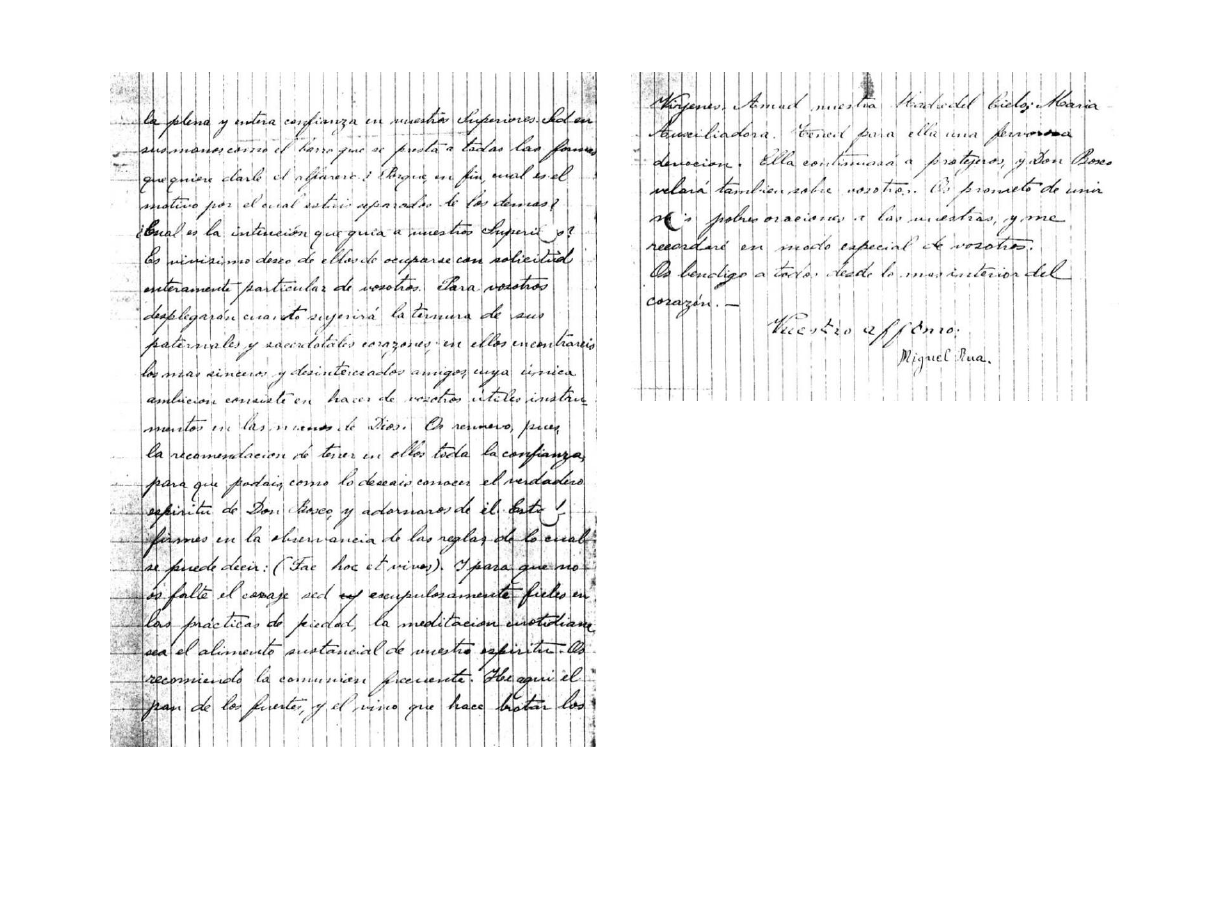 la plena y entera confianza en vuestros Superiores. Sed en
sus manos como el barro que se presta a todas las formas
que quiere darle el alfarero? Porque en fin, cual es el
motivo por el cual estais separados de los demas?
¿Cual es la intención que guia a nuestros Superio s?
Es vivisimo deseo de ellos de ocuparse con solicitud
enteramente particular de vosotros. Para vosotros
desplegarán cuanto sujerirá la ternura de sus
paternales y sacerdotales corazones; en ellos encontrareis
los mas sinceros y desinteresados amigos, cuya única
ambicion consiste en hacer de vosotros útiles instru-
mentos en las manos de Dios. Os renuevo, pues,
la recomendacion de tener en ellos toda la confianza,
para que podais, como lo deseais conocer el verdadero
espiritu de Don Bosco, y adornaros de él. Esta
firmes en la observancia de las reglas, de lo cual
se puede decir: (Fac hoc et vives). Y para que no
os falte el coraje sed escrupulosamente fieles en
las prácticas de piedad, la meditacion cuotidiana,
sea el alimento sustancial de vuestro espiritu. Os
recomiendo la comunion frecuente. He aqui el
pan de los fuertes, y el vino que hace brotar los
Virjenes. Amad nuestra Madre del Cielo; Maria
Auxiliadora. Tened para ella una fervorosa
devocion. Ella continuará a protejeros, y Don Bosco
velará tambien sobre vosotros. Os prometo de unir
mis pobres oraciones a las vuestras, y me
recordaré en modo especial de vosotros.
Os bendigo a todos desde lo mas interior del
corazón. —
Vuestro affcmo:
Miguel Rua.